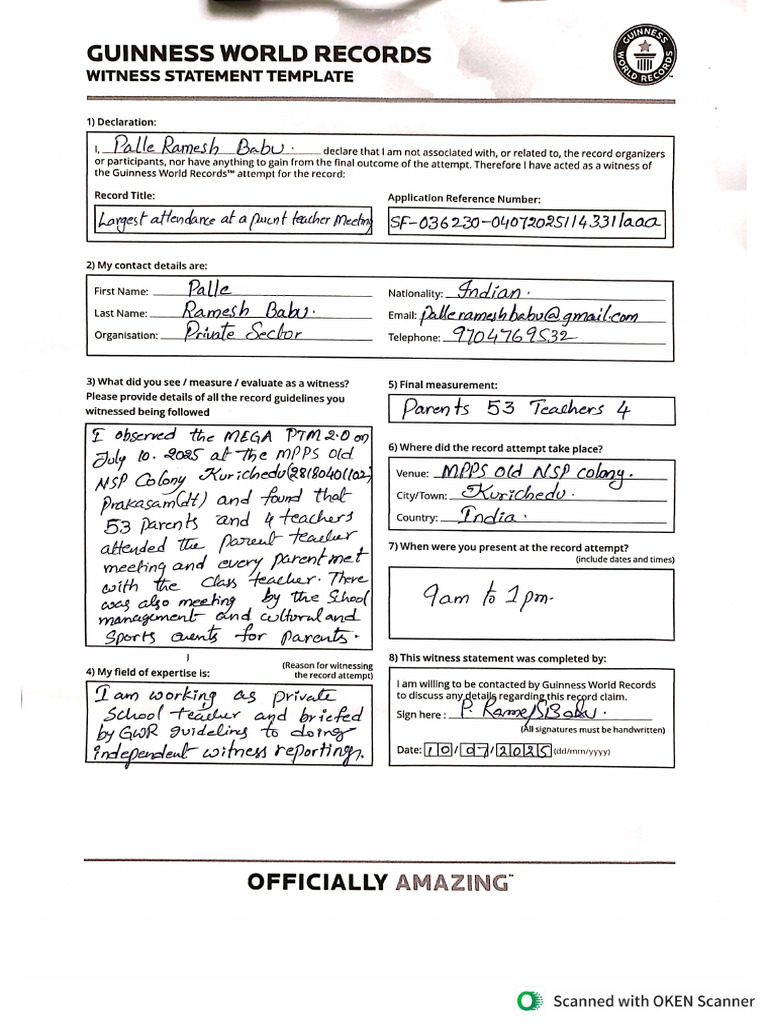 GUINNESS WORLD RECORDS
WITNESS STATEMENT TEMPLATE
GUINNESS
WORLD RECORDS
1) Declaration:
I, Palle Ramesh Babu. declare that I am not associated with, or related to, the record organizers
or participants, nor have anything to gain from the final outcome of the attempt. Therefore I have acted as a witness of
the Guinness World Records™ attempt for the record:
Record Title:
Largest attendance at a parent teacher Meeting
Application Reference Number:
SF-036230-04072025114331laaa
2) My contact details are:
First Name: Palle
Last Name: Ramesh Babu.
Organisation: Private Sector
Nationality: Indian.
Email: palle.rameshbabu@gmail.com
Telephone: 9704769532
3) What did you see / measure / evaluate as a witness?
Please provide details of all the record guidelines you
witnessed being followed
I observed the MEGA PTM 2.0 on
July 10. 2025 at the MPPS old
NSP Colony Kurichedu(28180401102)
Prakasam(dt) and found that
53 parents and 4 teachers
attended the parent teacher
meeting and every parent met
with the class teacher. There
was also meeting by the School
management and cultural and
Sports events for parents.
4) My field of expertise is:
(Reason for witnessing
the record attempt)
I am working as private
School teacher and briefed
by GWR guidelins to doing
independent witness reporting.
5) Final measurement:
Parents 53 Teachers 4
6) Where did the record attempt take place?
Venue: MPPS Old NSP colony.
City/Town: Kurichedu.
Country: India.
7) When were you present at the record attempt?
(include dates and times)
9am to 1pm.
8) This witness statement was completed by:
I am willing to be contacted by Guinness World Records
to discuss any details regarding this record claim.
Sign here: P. Ramesh Babu.
(All signatures must be handwritten)
Date: 10/07/2025 (dd/mm/yyyy)
OFFICIALLY AMAZING™
Scanned with OKEN Scanner